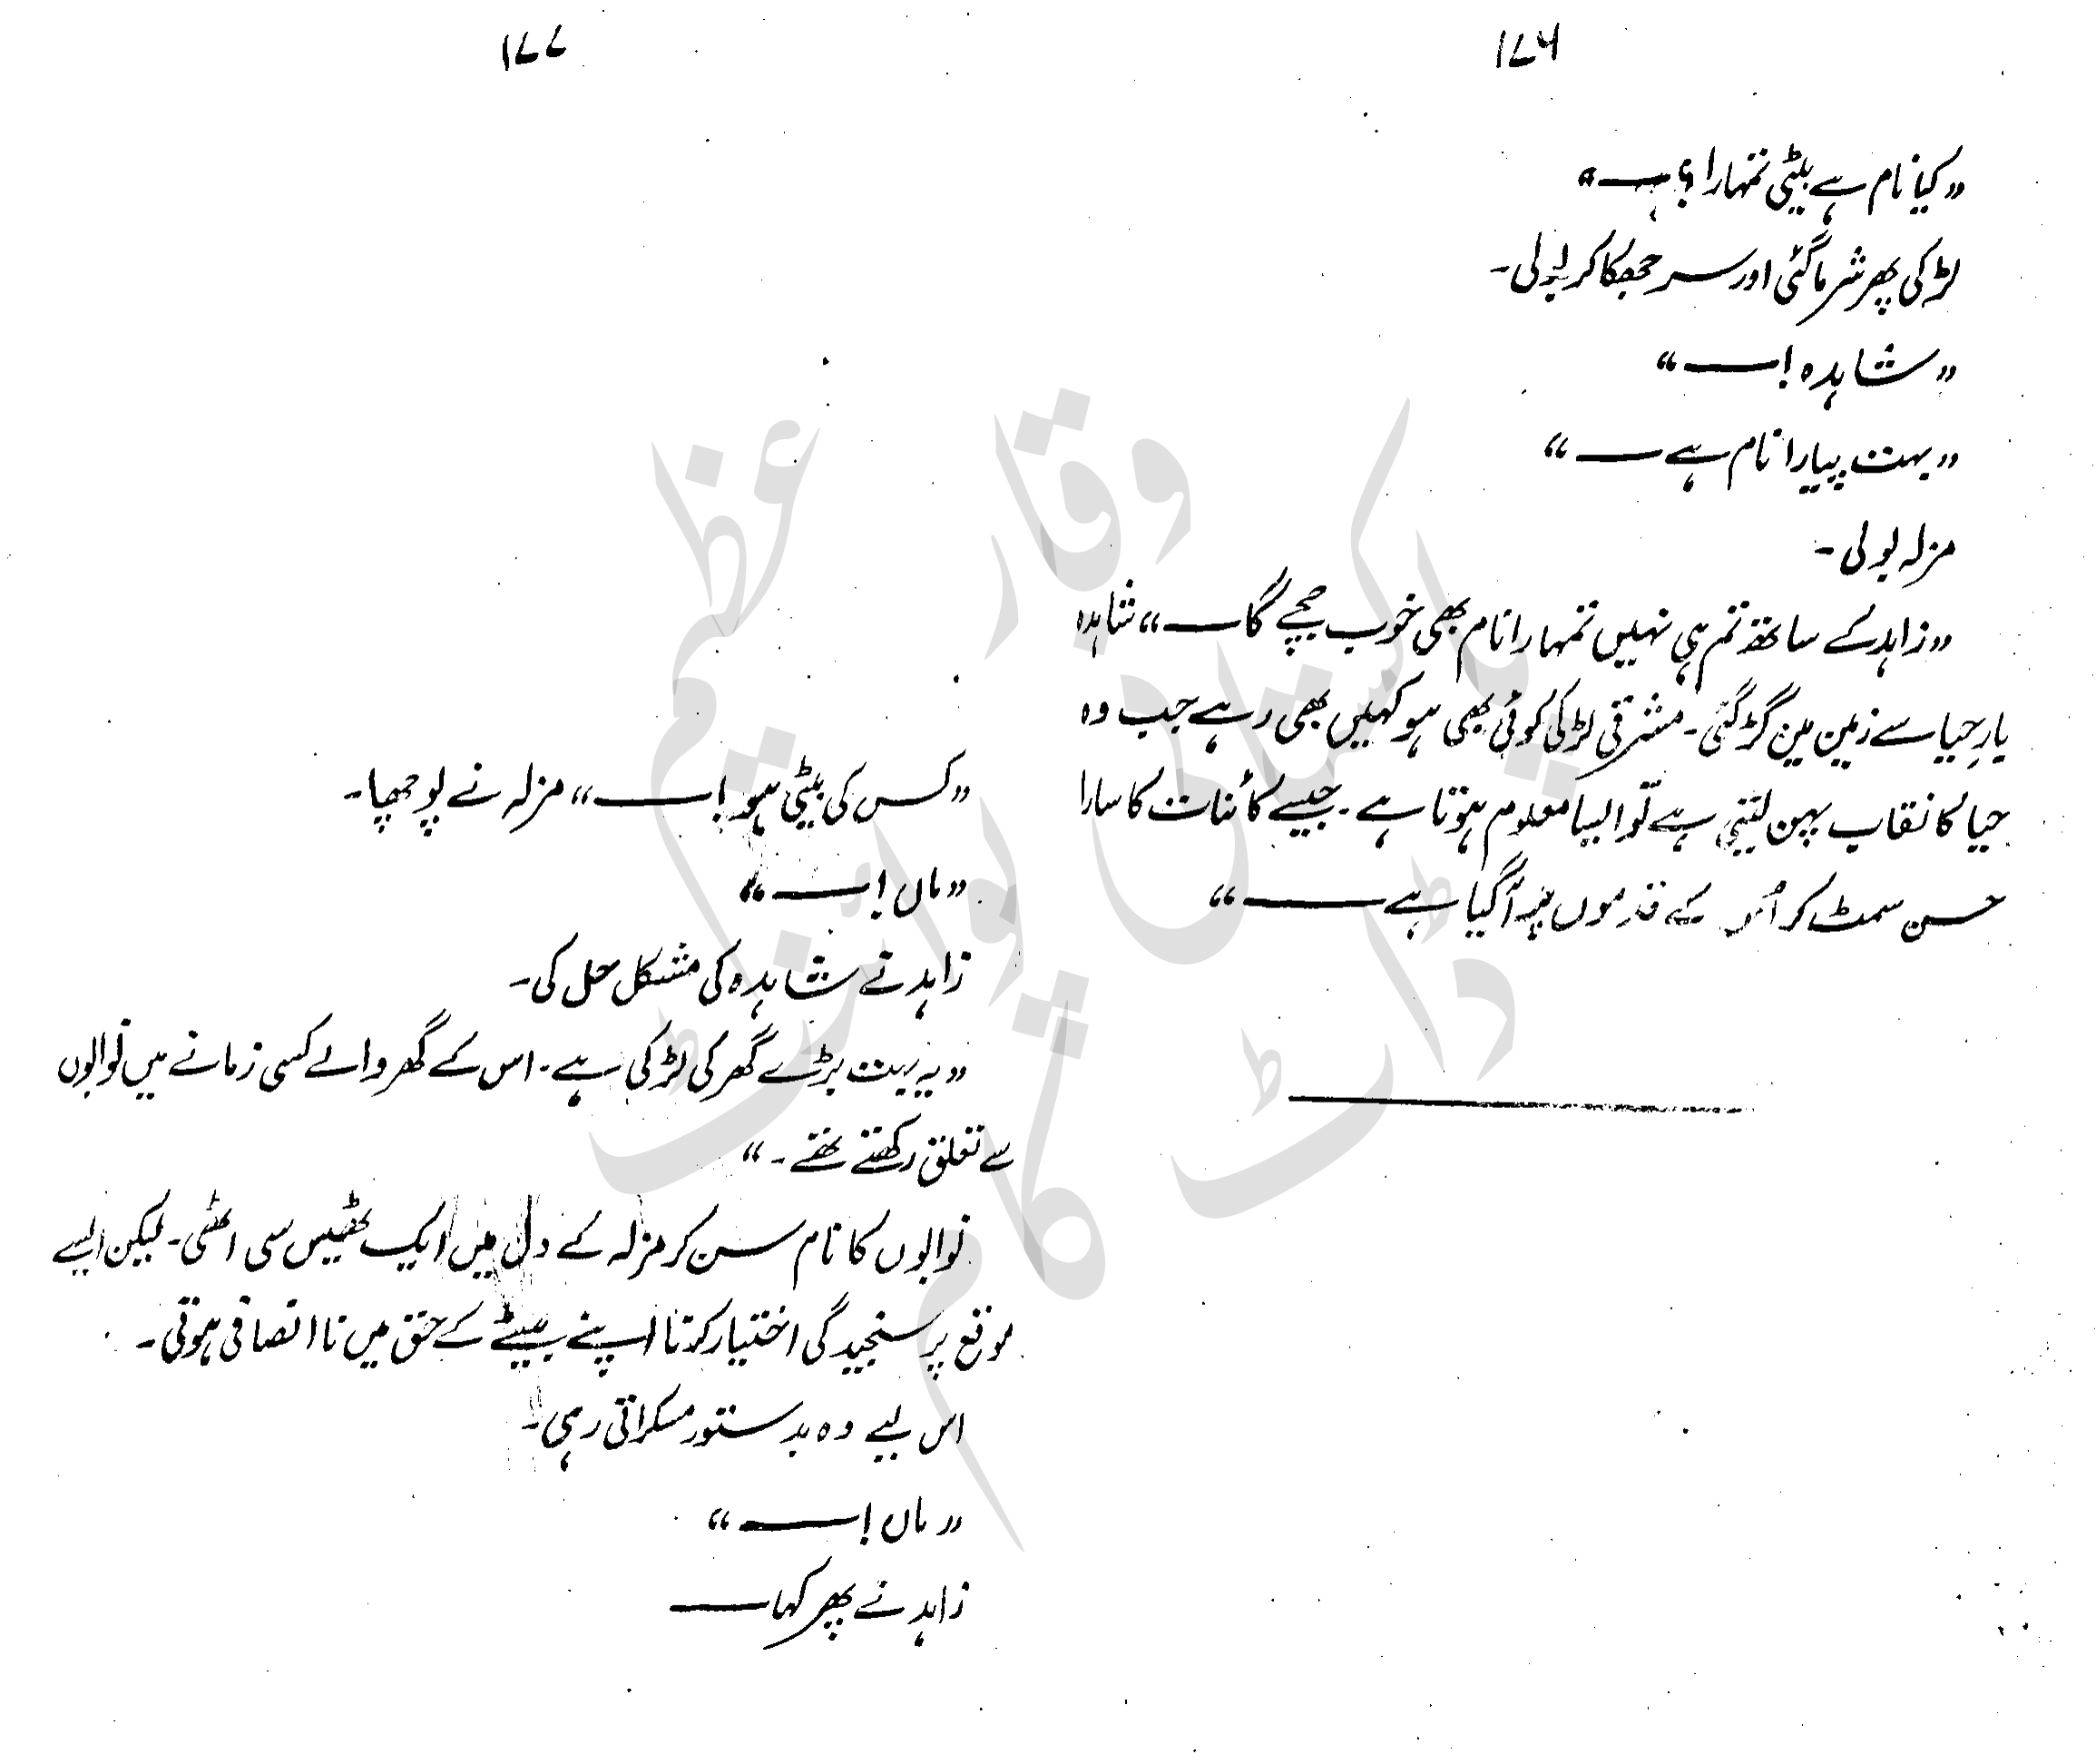 ۱۷۶
"کیا نام ہے بیٹی تمہارا؟ —"
لڑکی پھر شرما گئی اور سر جھکا کر بولی۔
"شاہدہ! —"
"بہت پیارا نام ہے —"
مزلہ بولی۔
"زاہد کے ساتھ تم ہی نہیں تمہارا نام بھی خوب جچے گا —" شاہدہ
بارِ حیا سے زمین میں گڑ گئی۔ مشرقی لڑکی کوئی بھی ہو کہیں بھی رہے جب وہ
حیا کا نقاب پہن لیتی ہے تو ایسا معلوم ہوتا ہے۔ جیسے کائنات کا سارا
حسن سمٹ کر اُس کے قدموں پر آ گیا ہے —"
۱۷۷
"کس کی بیٹی ہو! —" مزلہ نے پوچھا۔
"ماں! —"
زاہد نے شاہدہ کی مشکل حل کی۔
"یہ بہت بڑے گھر کی لڑکی ہے۔ اس کے گھر والے کسی زمانے میں نوابوں
سے تعلق رکھتے تھے۔"
نوابوں کا نام سن کر مزلہ کے دل میں ایک ٹھیس سی اٹھی۔ لیکن ایسے
موقع پر سنجیدگی اختیار کرنا اپنے بیٹے کے حق میں ناانصافی ہوتی۔
اس لیے وہ بدستور مسکراتی رہی۔
"ماں! —"
زاہد نے پھر کہا —
وقار عظیم
پاکستانی پوائنٹ
ڈاٹ کام